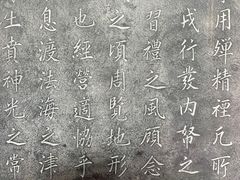 用殫精裡凡所
戌行發內帑之
習禮之風顧念
之頃周覽地形
也經營適協乎
息渡法海之津
生賁神光之常